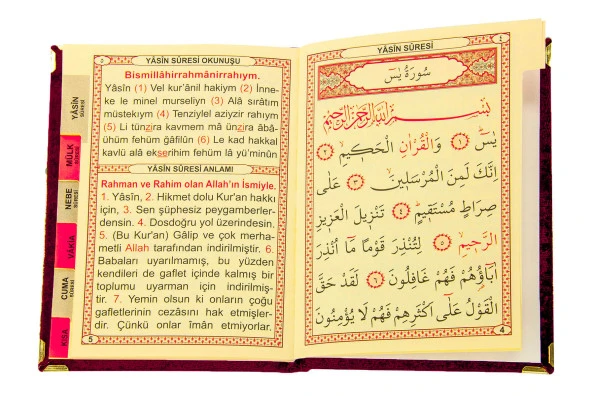 YÂSİN
SÛRESİ
MÜLK
SÛRESİ
NEBE
SÛRESİ
VÂKIA
CUMA
SÛRESİ
KISA
YÂSİN SÛRESİ OKUNUŞU
Bismillâhirrahmânirrahıym.
Yâsîn (1) Vel kur'ânil hakiym (2) İnne-
ke le minel murseliyn (3) Alâ sırâtım
müstekıym (4) Tenziylel aziyzir rahıym
(5) Li tünzira kavmem mâ ünzira âbâ-
ühüm fehüm ğâfilûn (6) Le kad hakkal
kavlü alâ ekserihim fehüm lâ yü'minûn
YÂSİN SÛRESİ ANLAMI
Rahman ve Rahim olan Allah'ın İsmiyle.
1. Yâsin, 2. Hikmet dolu Kur'an hakkı
için, 3. Sen şüphesiz peygamberler-
densin. 4. Dosdoğru yol üzerindesin.
5. (Bu Kur'an) Gâlip ve çok merha-
metli Allah tarafından indirilmiştir. 6.
Babaları uyarılmamış, bu yüzden
kendileri de gaflet içinde kalmış bir
toplumu uyarman için indirilmiş-
tir. 7. Yemin olsun ki onların çoğu
gafletlerinin cezasını hak etmişler-
dir. Çünkü onlar îmân etmiyorlar.
5
YÂSİN SÛRESİ
٤
سُورَةُ يٰسٓ
بِسْمِ اللّٰهِ الرَّحْمٰنِ الرَّحِيمِ
يٰسٓ ﴿١﴾ وَالْقُرْاٰنِ الْحَكِيمِ ﴿٢﴾
اِنَّكَ لَمِنَ الْمُرْسَلِينَ ﴿٣﴾ عَلٰى
صِرَاطٍ مُسْتَقِيمٍ ﴿٤﴾ تَنْزِيلَ الْعَزِيزِ
الرَّحِيمِ ﴿٥﴾ لِتُنْذِرَ قَوْمًا مَٓا اُنْذِرَ
اٰبَٓاؤُهُمْ فَهُمْ غَافِلُونَ ﴿٦﴾ لَقَدْ حَقَّ
الْقَوْلُ عَلٰٓى اَكْثَرِهِمْ فَهُمْ لَا يُؤْمِنُونَ
4